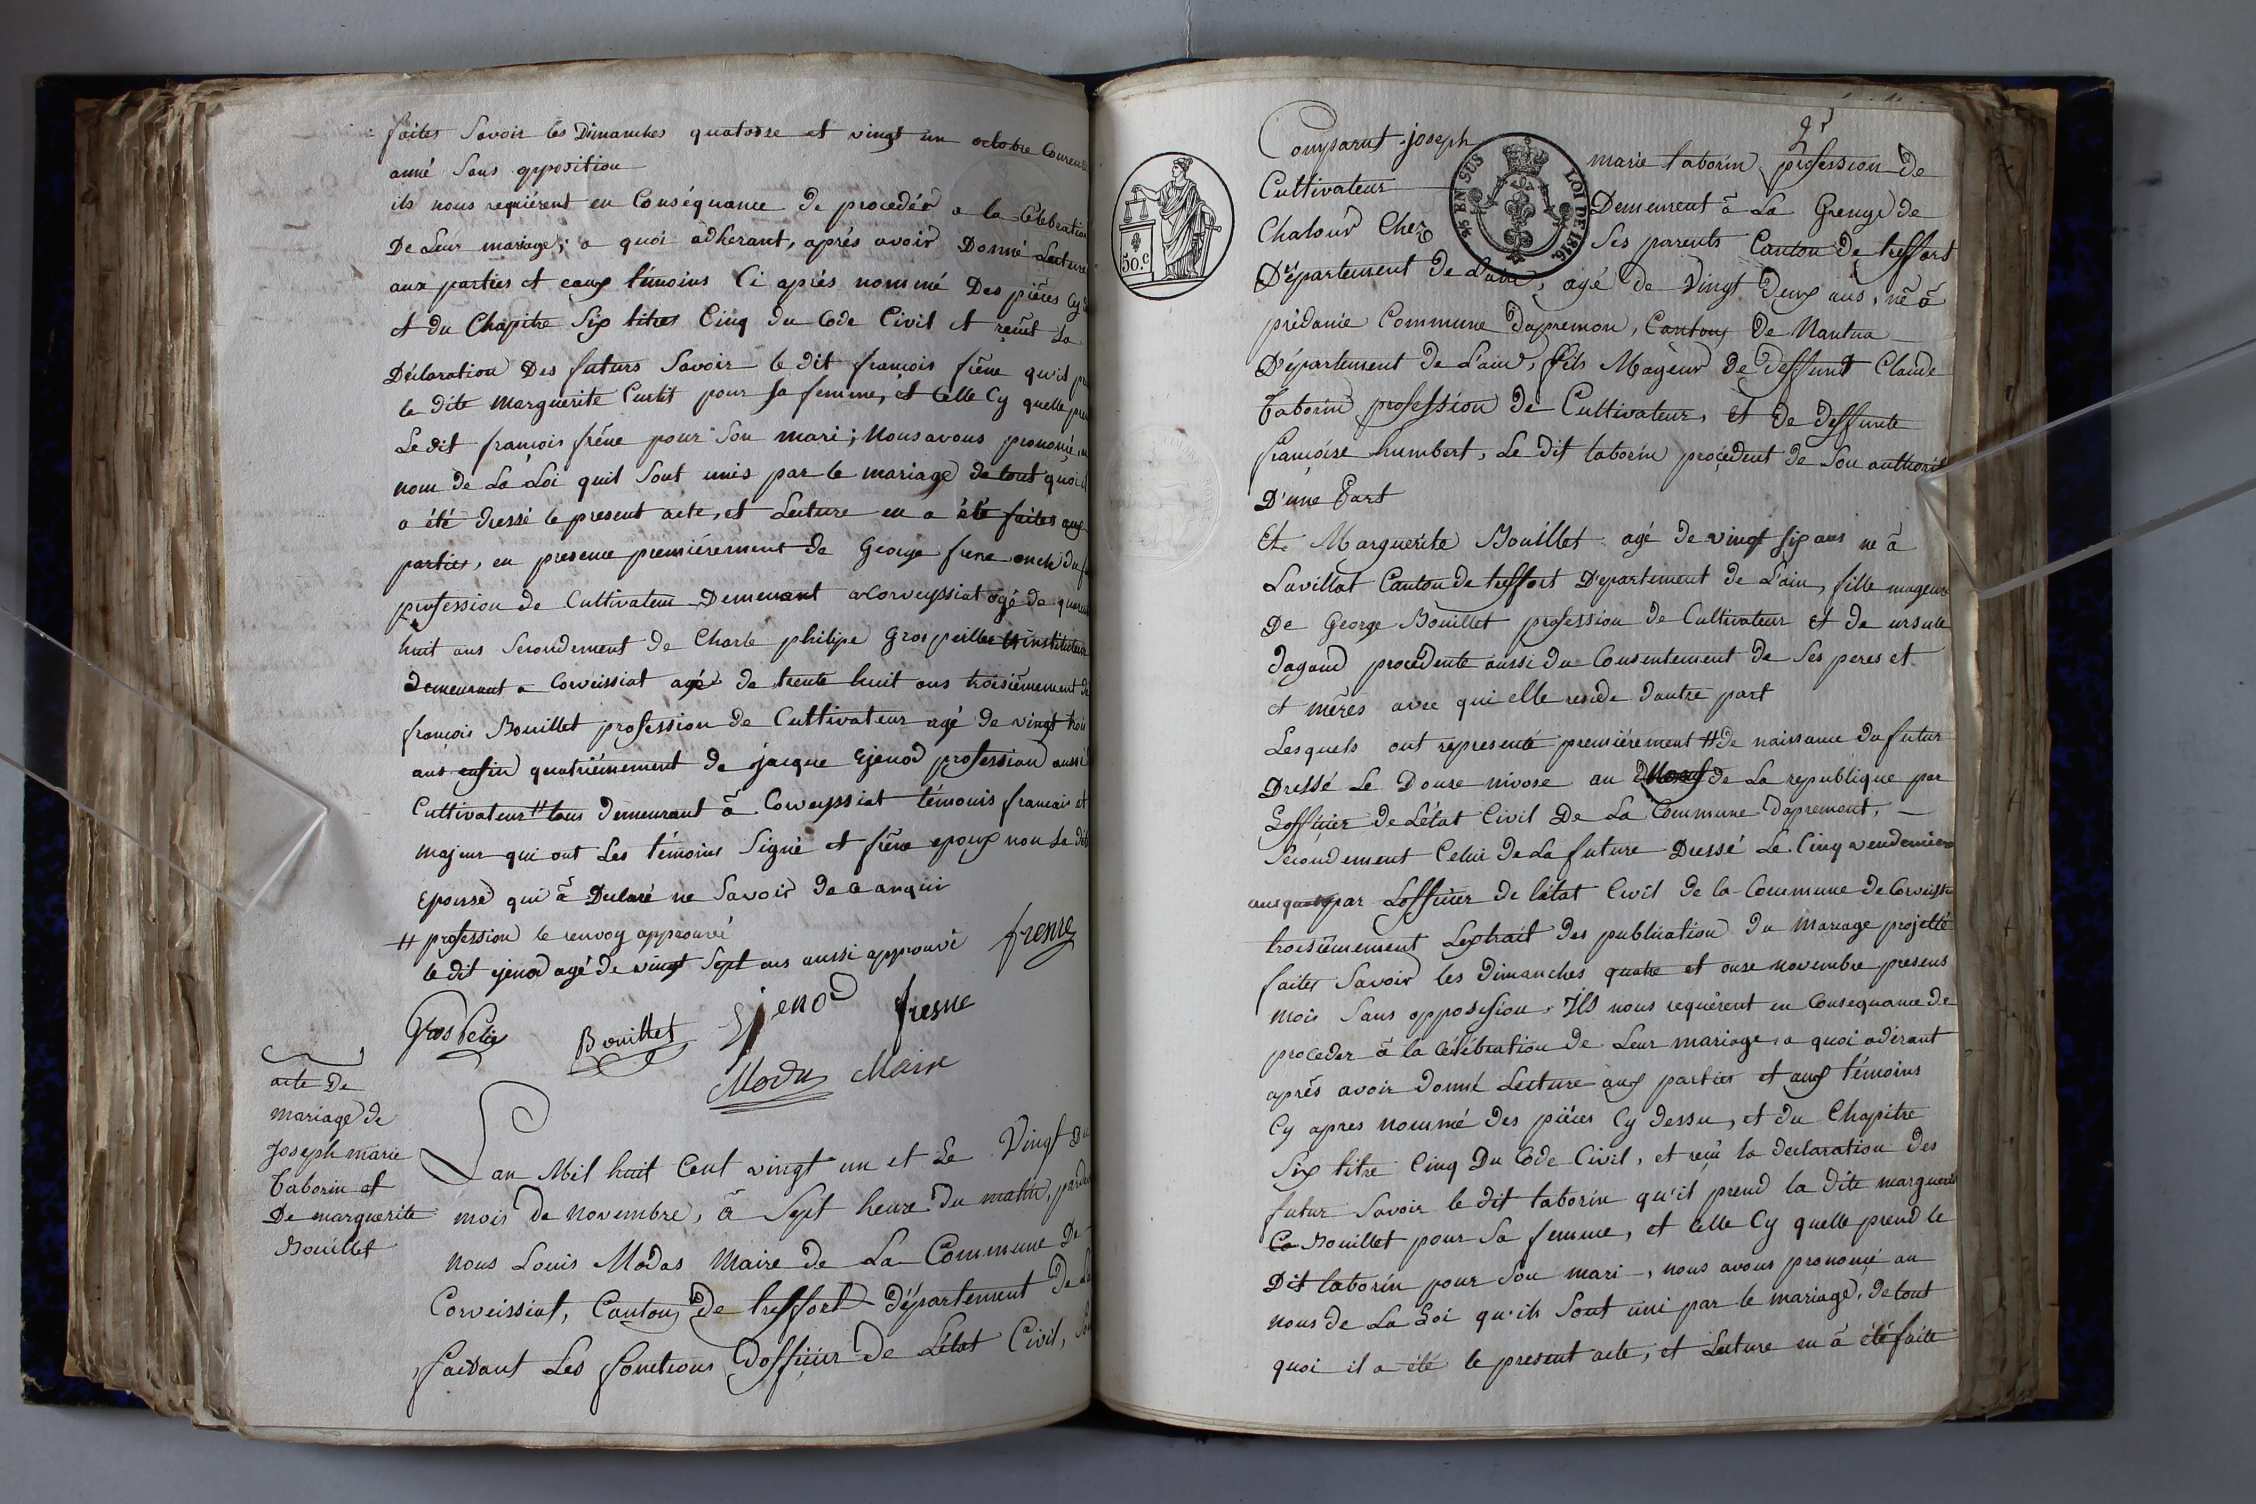 faites Savoir les Dimanches quatorse et vingt un octobre Courent
anné Sans opposition
ils nous requiérent en Conséquance de procedér a la Célebration
De Leur mariage; a quoi adherant, aprés avoir Donné Lecture
aux parties et eaux témoins Ci aprés nommé Des piéces Cy
et du Chapitre Six titres Cinq du Code Civil et reçut La
Déclaration Des futurs Savoir le dit françois frêne qu'il
la dite Marguerite Curtit pour Sa femme, et Celle Cy quelle
Le dit françois frêne pour Son mari; Nous avons prononcé
nom de La Loi quil Sont unis par le mariage de tout quoi il
a été dressé le present acte, et Lecture en a été faites aux
parties, en presence premiérement de George frene oncle du
profession de Cultivateur Demeurant a Corveyssiat agé de quarante
huit ans Secondement de Charle philipe Grospeiller instituteur
demeurant a Corveissiat agé de trente huit ans troisiêmement de
françois Bouillet profession de Cultivateur agé de vingt trois
ans enfin quatriémement de jacque Ejenod profession aussi
Cultivateur # tous demeurant â Corveyssiat témoins francais et
majeur qui ont Les témoins Signé et frêne epoux non La dite
Epouse qui â Déclaré ne Savoir de ce anquir
# profession le renvoy approuvé
le dit ejenod agé de vingt Sept ans aussi approuvé fresne
Gros Pelier Bouillet Ejenod fresne
Modas Maire
acte De
mariage de
Joseph marie
Taborin et
De marguerite
Bouillet
Lan Mil huit Cent vingt un et Le Vingt Du
mois de Novembre, â Sept heure du matin, pardevant
nous Louis Modas Maire de La Commune De
Corveissiat, Canton de treffort département De
faisant Les fonctions d'officier de L'état Civil,
95
Comparut joseph marie taborin profession de
Cultivateur Demeurent â La Grenge de
Chalour Chez Ses parents Canton de treffort
Département de L'ain, agé de Vingt Deux ans, né â
prédanie Commune dapremon, Canton De Nantua
Département de L'ain, fils Mageur de deffunt Claude
Taborin profession de Cultivateur, et de deffunte
françoise humbert, Le dit taborin procedent de Son authorité
D'une Part
Et Marguerite Bouillet agé de vingt Six ans né â
Lavillat Canton de treffort Département de L'ain, fille mageure
De George Bouillet profession de Cultivateur et de ursule
dagand procedente aussi du Consentement de Ses peres et
et mêres avec qui elle reside dautre part
Lesquels ont representé premiérement # de naissance du futur
Dressé Le Douse nivose an de La republique par
Lofficier de L'état Civil De La Commune dapremont,
Secondement Celui de La future Dressé Le Cinq vendemiere
par Lofficier de l'état Civil de la Commune de Corveissiat
troisiêmement Lextrait des publication du Mariage projetté
faites Savoir les dimanches quatre et onse novembre presens
mois Sans opposision. Ils nous requérent en Consequance de
proceder â la Célébration de Leur mariage, a quoi adérant
aprês avoir donné Lecture aux parties et aux témoins
Cy apres nommé des piéces Cy dessu, et du Chapitre
Six titre Cinq Du Code Civil, et reçu la declaration des
futur Savoir le dit taborin qu'il prend la dite marguerite
Bouillet pour Sa femme, et Celle Cy quelle prend le
Dit taborin pour Son mari, nous avons prononcé au
nous de La Loi qu'ils Sont uni par le mariage, de tout
quoi il a été le present acte, et Lecture en â été faite
50.C
95 EN SUS
LOI DE 1816.